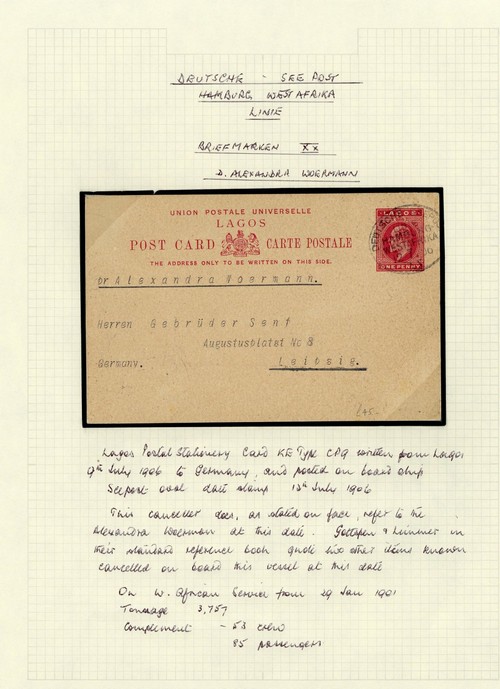 DEUTSCHE - SEE POST
HAMBURG WESTAFRIKA
LINIE
BRIEFMARKEN XX
D. ALEXANDRA WOERMANN
UNION POSTALE UNIVERSELLE
LAGOS
POST CARD CARTE POSTALE
THE ADDRESS ONLY TO BE WRITTEN ON THIS SIDE.
LAGOS
ONE PENNY
pr Alexandra Woermann.
Herren Gebrüder Senf
Augustusplatst No 8
Germany. Leipzig.
£45-
Lagos Postal Stationery Card KE Type CP9 written from Lagos
9th July 1906 to Germany, and posted on board ship
Seepost oval date stamp 13th July 1906
This canceller does, as stated on face, refer to the
Alexandra Woermann at this date. & in
their standard reference book quote two other items known
cancelled on board this vessel at this date
On W. African Service from 29 Jan 1901
Tonnage 3,757
Complement - 53 crew
85 passengers